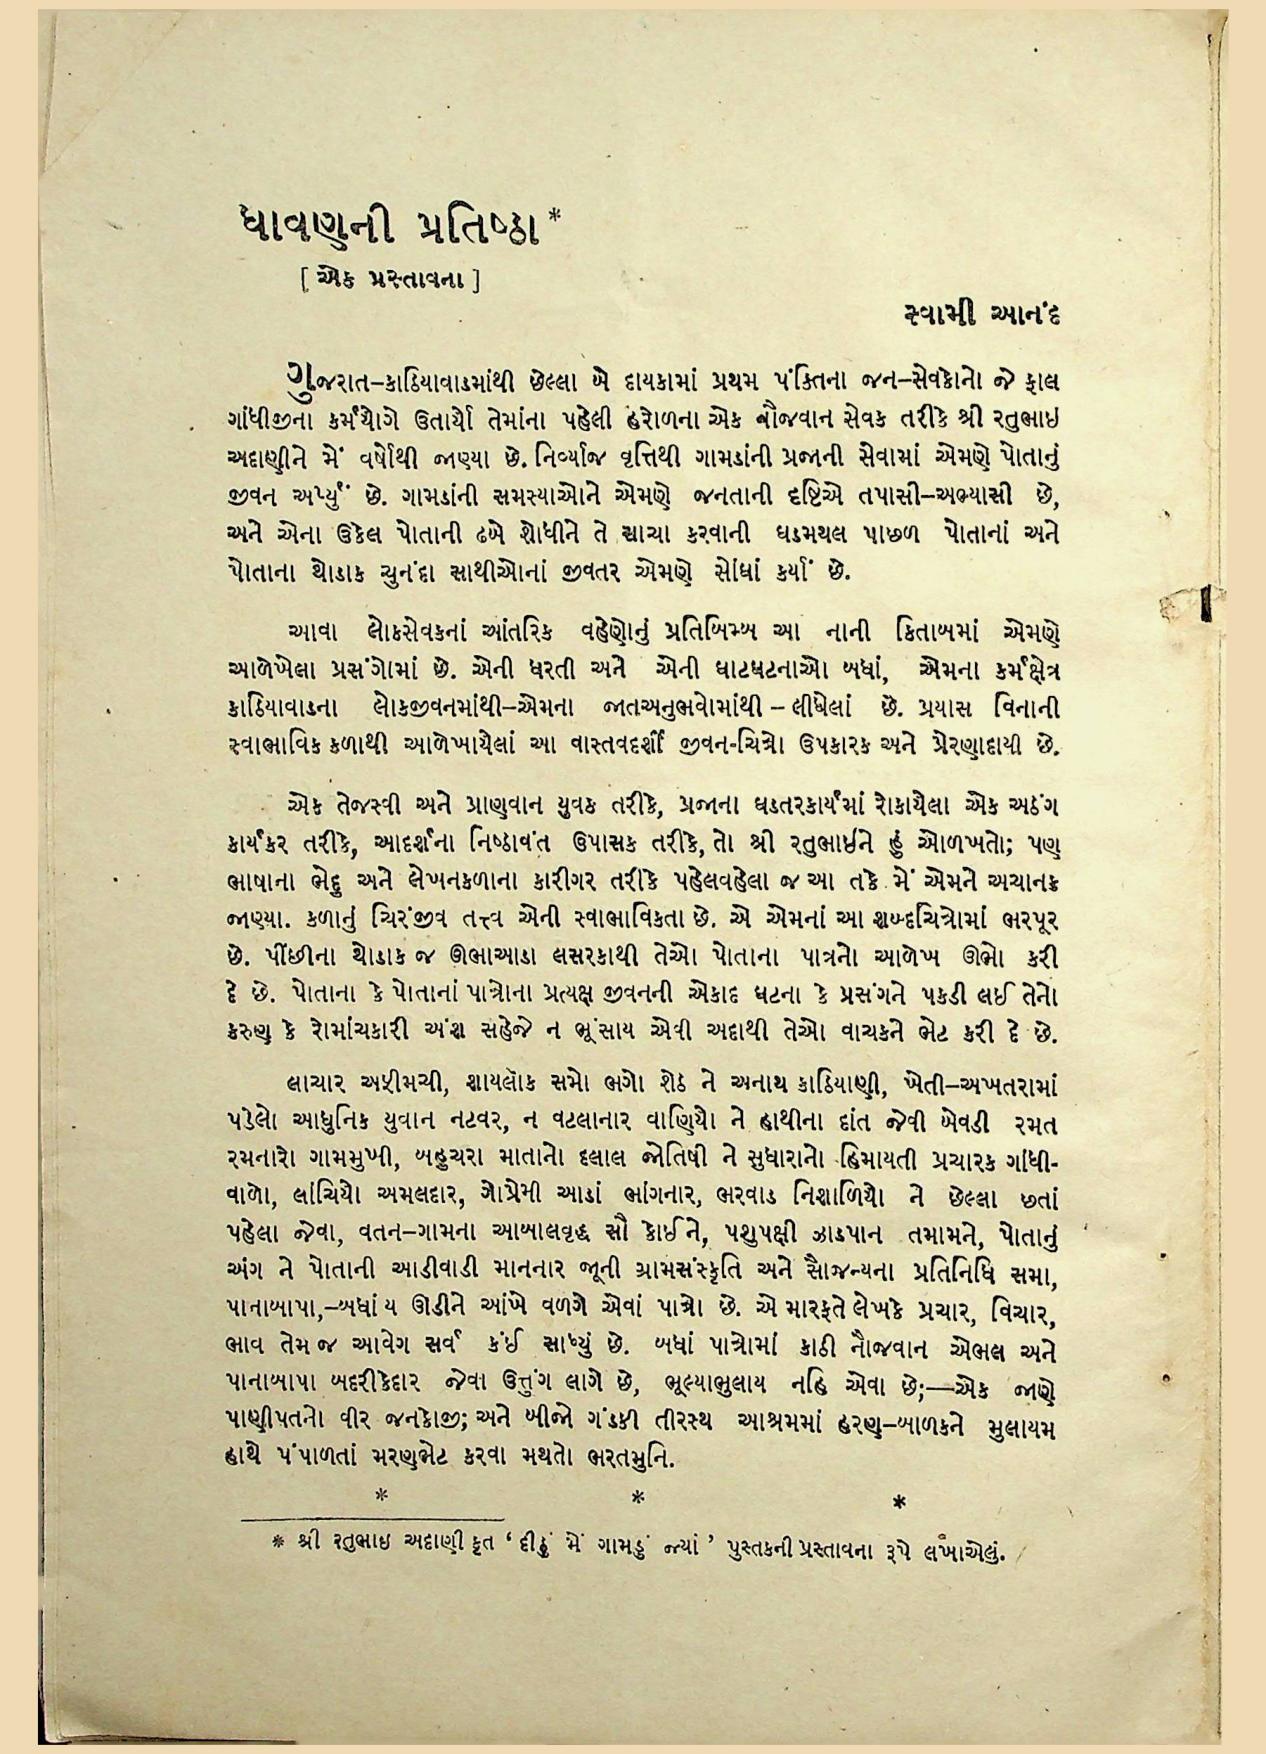 ધાવણની પ્રતિષ્ઠા*
[ એક પ્રસ્તાવના ]
સ્વામી આનંદ
ગુજરાત–કાઠિયાવાડમાંથી છેલ્લા બે દાયકામાં પ્રથમ પંક્તિના જન–સેવકોનો જે ફાલ
ગાંધીજીના કર્મયોગે ઉતાર્યો તેમાંના પહેલી હરોળના એક નૌજવાન સેવક તરીકે શ્રી રતુભાઇ
અદાણીને મેં વર્ષોથી જાણ્યા છે. નિર્વ્યાજ વૃત્તિથી ગામડાંની પ્રજાની સેવામાં એમણે પોતાનું
જીવન અર્પ્યું છે. ગામડાંની સમસ્યાઓને એમણે જનતાની દૃષ્ટિએ તપાસી–અભ્યાસી છે,
અને એના ઉકેલ પોતાની ઢબે શોધીને તે સાચા કરવાની ઘડમથલ પાછળ પોતાનાં અને
પોતાના થોડાક ચુનંદા સાથીઓનાં જીવતર એમણે સોંઘાં કર્યાં છે.
આવા લોકસેવકનાં આંતરિક વહેણોનું પ્રતિબિમ્બ આ નાની કિતાબમાં એમણે
આળેખેલા પ્રસંગોમાં છે. એની ધરતી અને એની ઘાટઘટનાઓ બધાં, એમના કર્મક્ષેત્ર
કાઠિયાવાડના લોકજીવનમાંથી–એમના જાતઅનુભવોમાંથી – લીધેલાં છે. પ્રયાસ વિનાની
સ્વાભાવિક કળાથી આળેખાયેલાં આ વાસ્તવદર્શી જીવન-ચિત્રો ઉપકારક અને પ્રેરણાદાયી છે.
એક તેજસ્વી અને પ્રાણવાન યુવક તરીકે, પ્રજાના ઘડતરકાર્યમાં રોકાયેલા એક અઠંગ
કાર્યકર તરીકે, આદર્શના નિષ્ઠાવંત ઉપાસક તરીકે, તો શ્રી રતુભાઈને હું ઓળખતો; પણ
ભાષાના ભેદુ અને લેખનકળાના કારીગર તરીકે પહેલવહેલા જ આ તકે મેં એમને અચાનક
જાણ્યા. કળાનું ચિરંજીવ તત્ત્વ એની સ્વાભાવિકતા છે. એ એમનાં આ શબ્દચિત્રોમાં ભરપૂર
છે. પીંછીના થોડાક જ ઊભાઆડા લસરકાથી તેઓ પોતાના પાત્રનો આળેખ ઊભો કરી
દે છે. પોતાના કે પોતાનાં પાત્રોના પ્રત્યક્ષ જીવનની એકાદ ઘટના કે પ્રસંગને પકડી લઈ તેનો
કરુણ કે રોમાંચકારી અંશ સહેજે ન ભૂંસાય એવી અદાથી તેઓ વાચકને ભેટ કરી દે છે.
લાચાર અફીમચી, શાયલૉક સમો ભગો શેઠ ને અનાથ કાઠિયાણી, ખેતી–અખતરામાં
પડેલો આધુનિક યુવાન નટવર, ન વટલાનાર વાણિયો ને હાથીના દાંત જેવી બેવડી રમત
રમનારો ગામમુખી, બહુચરા માતાનો દલાલ જોતિષી ને સુધારાનો હિમાયતી પ્રચારક ગાંધી-
વાળો, લાંચિયો અમલદાર, ગોપ્રેમી આડાં ભાંગનાર, ભરવાડ નિશાળિયો ને છેલ્લા છતાં
પહેલા જેવા, વતન–ગામના આબાલવૃદ્ધ સૌ કોઈને, પશુપક્ષી ઝાડપાન તમામને, પોતાનું
અંગ ને પોતાની આડીવાડી માનનાર જૂની ગ્રામસંસ્કૃતિ અને સૌજન્યના પ્રતિનિધિ સમા,
પાનાબાપા,–બધાંય ઊડીને આંખે વળગે એવાં પાત્રો છે. એ મારફતે લેખકે પ્રચાર, વિચાર,
ભાવ તેમ જ આવેગ સર્વ કંઈ સાધ્યું છે. બધાં પાત્રોમાં કાઠી નૌજવાન એભલ અને
પાનાબાપા બદરીકેદાર જેવા ઉત્તુંગ લાગે છે, ભૂલ્યાભુલાય નહિ એવા છે;—એક જાણે
પાણીપતનો વીર જનકોજી; અને બીજો ગંડકી તીરસ્થ આશ્રમમાં હરણ–બાળકને મુલાયમ
હાથે પંપાળતાં મરણભેટ કરવા મથતો ભરતમુનિ.
* * *
* શ્રી રતુભાઇ અદાણી કૃત ‘ દીઠું મેં ગામડું જ્યાં ’ પુસ્તકની પ્રસ્તાવના રૂપે લખાએલું.